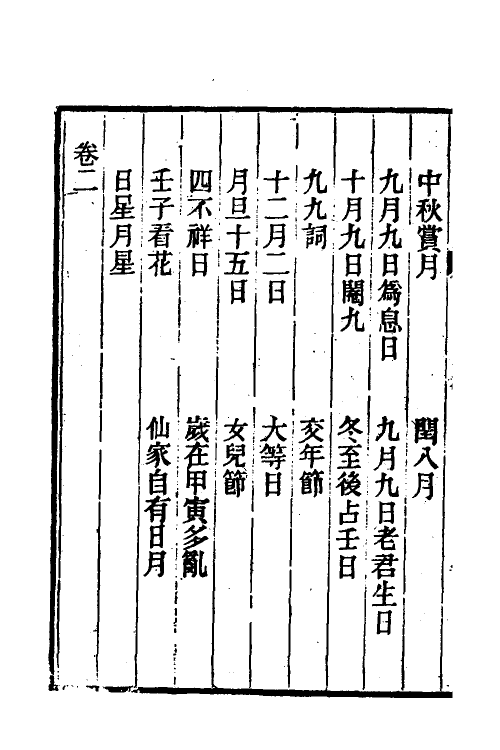 中秋賞月　閏八月
九月九日爲息日　九月九日老君生日
十月九日閹九　冬至後占壬日
九九詞　交年節
十二月二日　大等日
月旦十五日　女兒節
四不祥日　歲在甲寅多亂
壬子看花　仙家自有日月
日星月星
卷二